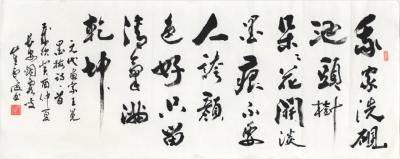 我家洗硯
池頭樹
朵々花開淡
墨痕不要
人誇顏
色好只留
清氣滿
乾坤
元代畫家王冕
墨梅詩一首
癸酉仲夏
長安